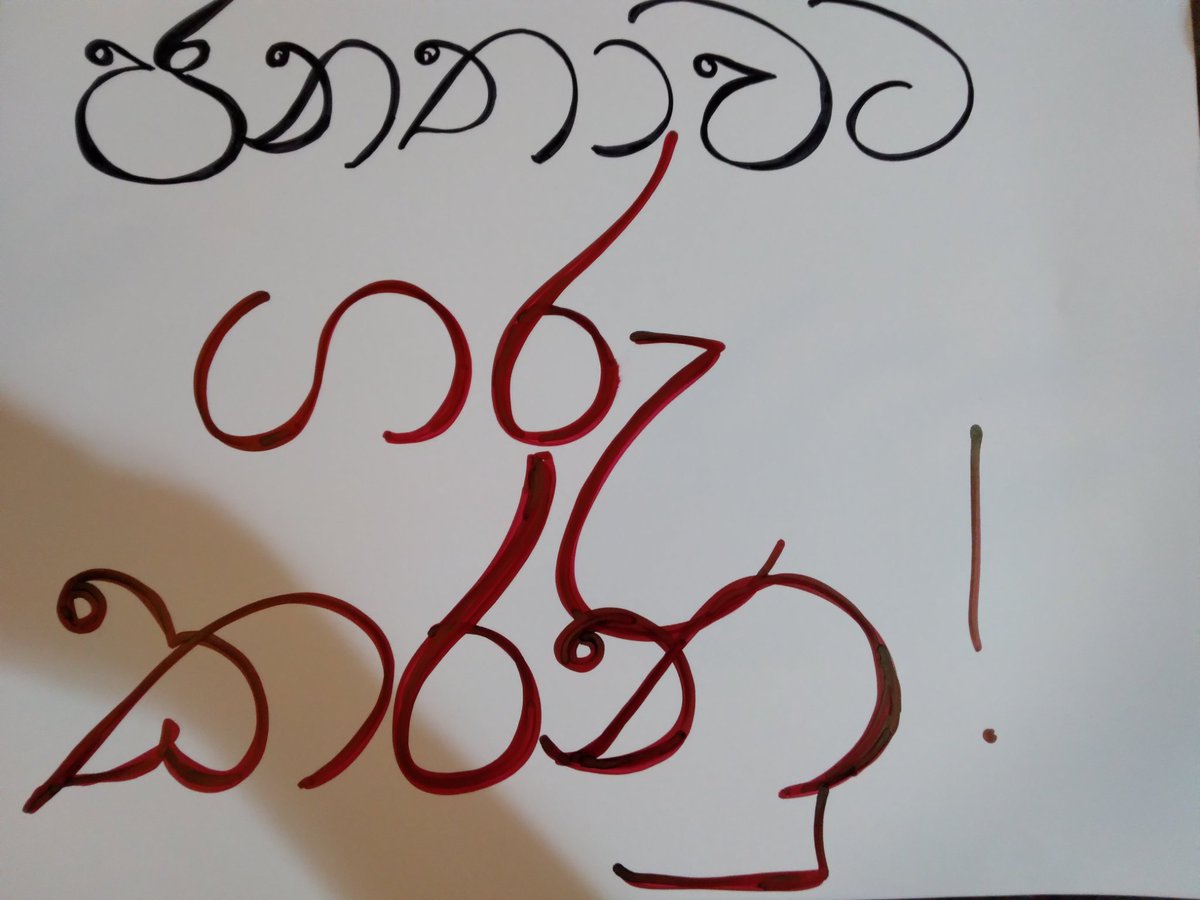 ජනතාවට
ගරු
කරනු!